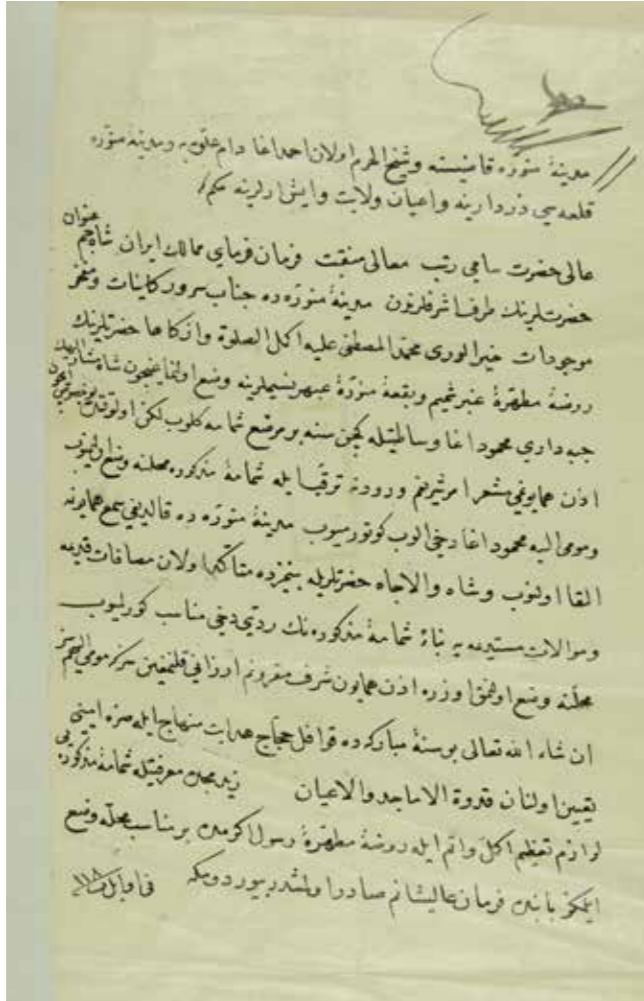 مدینۀ منوره قاضیسنه و شیخ الحرم اولان احمد اغا دام علوه یه و مدینۀ منوره
قلعه سی دزدارینه و اعیان ولایت و ایش ارلرینه حکم
عالی حضرت سامی رتب معالی منقبت فرمان فرمای ممالك ایران شاه جم عنوان
حضرتلرینك طرف اشرفلرندن مدینۀ منوره ده جناب سرور کاینات و مفخر
موجودات خیر الوری محمد المصطفی علیه اکمل الصلوة و ازکاها حضرتلرینك
روضۀ مطهرۀ عنبر شمیم و بقعۀ منورۀ عبهر نسیملرینه وضع اولنمق ایچون شاه مشار الیهك
جبه داری محمود اغا وساطتیله کچن سنه بر مرصع شمامه کلوب لکن اول وقت
اذن همایونمی مشعر امر شریفم ورودنه ترقبا ایله شمامۀ مذکوره محلنه وضع اولنمیوب
و مومی الیه محمود اغا دخی الوب کوتورمیوب مدینۀ منوره ده قالدیغی سمع همایونمه
القا اولنوب و شاه والاجاه حضرتلریله بینمزده متأکد اولان مصافات قدیمه
و موالات مستدیمه یه بناءً شمامۀ مذکوره نك ردی دخی مناسب کورلمیوب
محلنه وضع اولنمق اوزره اذن همایون شرف مقرونم ارزانی قلنمغین سز که مومی الیهم سز
ان شاء الله تعالی بو سنۀ مبارکه ده قوافل حجاج هدایت منهاج ایله صره امینی
تعیین اولنان قدوة الاماجد والاعیان زید مجده معرفتیله شمامۀ مذکوره یی
لوازم تعظیم اکمل و اتم ایله روضۀ مطهرۀ رسول اکرمده بر مناسب محله وضع
ایلمکز بابنده فرمان عالیشانم صادر اولمشدر بیوردم که فی اوایل